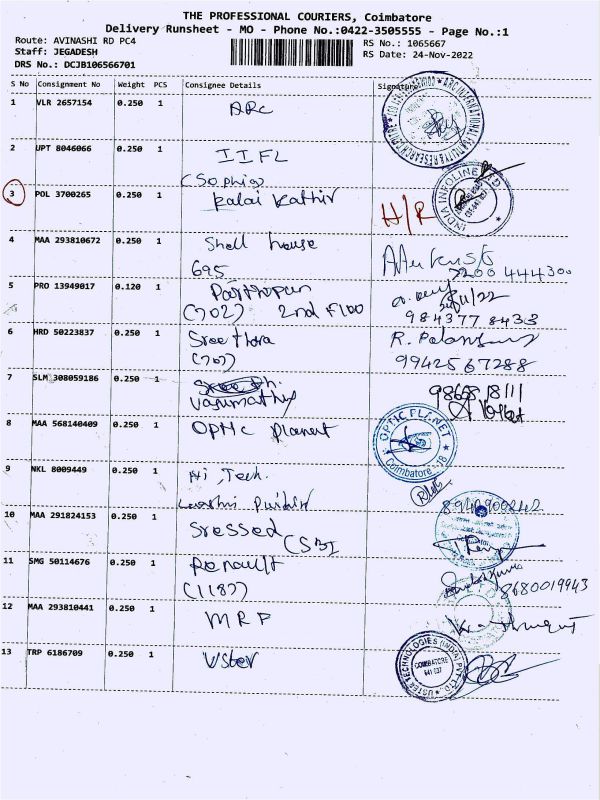 THE PROFESSIONAL COURIERS, Coimbatore
Delivery Runsheet - MO - Phone No.:0422-3505555 - Page No.:1
Route: AVINASHI RD PC4
RS No.: 1065667
Staff: JEGADESH
RS Date: 24-Nov-2022
DRS No.: DCJB106566701
S No Consignment No Weight PCS Consignee Details Signature
1 VLR 2657154 0.250 1 ARC
2 UPT 8046066 0.250 1 IIFL
(Sophia)
3 POL 3700265 0.250 1 Kalai Kathir H/R
INDIA INFOLINE LTD.
4 MAA 293810672 0.250 1 Shell house
695 7200 444300
5 PRO 13949017 0.120 1
(702) 2nd Floo
984377 8433
6 HRD 50223837 0.250 1 Sree thara
(707) 9942567288
7 SLM 308059186 0.250 1
Vasumathy
8 MAA 568140409 0.250 1 Optic Planet
OPTIC PLANET
Coimbatore - 18
9 NKL 8009449 0.250 1 Hi, Tech.
10 MAA 291824153 0.250 1 Sressed
(SBI
11 SMG 50114676 0.250 1 Renault
(1187) 8680019943
12 MAA 293810441 0.250 1 MRF
13 TRP 6186709 0.250 1 Uster
USTER TECHNOLOGIES (INDIA) PVT. LTD.
COIMBATORE
641 037